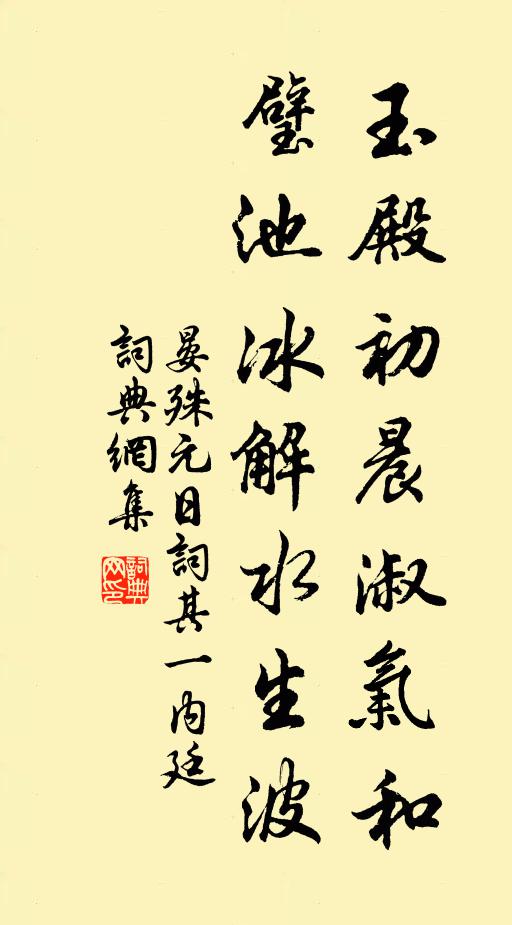 玉殿初晨淑氣和
璧池冰解水生波
晏殊元日詞其一內廷
詞典網集
詞典網印